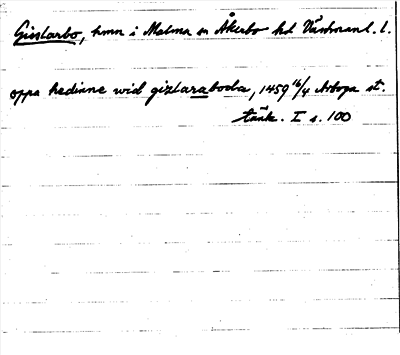 Gislarbo, hmn i Malma sn Åkerbo hd Västmanl. l.
oppa hedinne wid gizlaraboda, 1459 16/4 Arboga st.
tänk. I s. 100